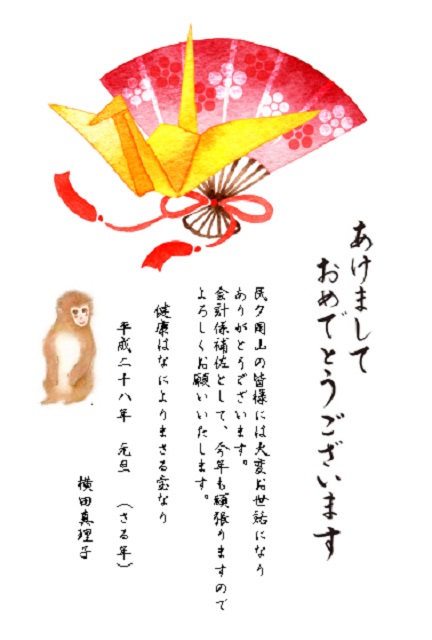 あけまして
おめでとうございます
民夕岡山の皆様には大変お世話になり
ありがとうございます。
会計係補佐として、今年も頑張りますので
よろしくお願いいたします。
健康はなによりまさる宝なり
平成二十八年 元旦 (さる年)
横田真理子